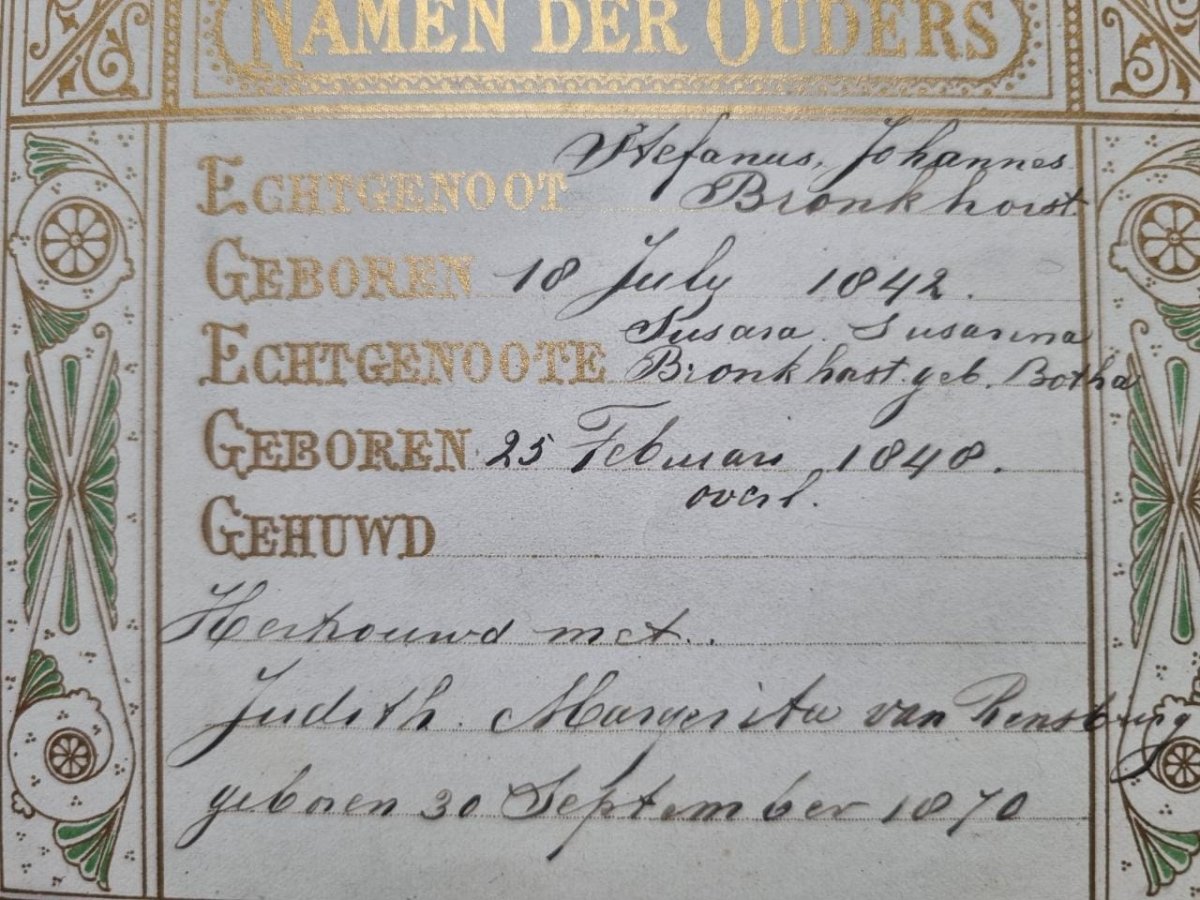 NAMEN DER OUDERS
ECHTGENOOT Stefanus, Johannes
Bronkhorst
GEBOREN 18 July 1842.
Susara. Susanna
ECHTGENOOTE Bronkhorst. geb. Botha
GEBOREN 25 Februari 1848.
overl.
GEHUWD
Hertrouwd met.
Judith. Margerita van Rensburg
geboren 30 September 1870